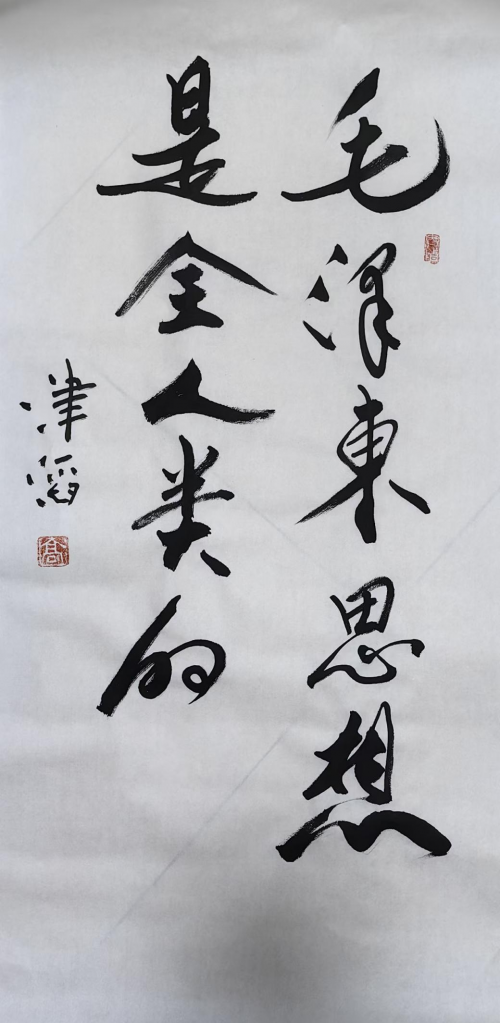 毛泽東思想
是全人类的
津滔
高